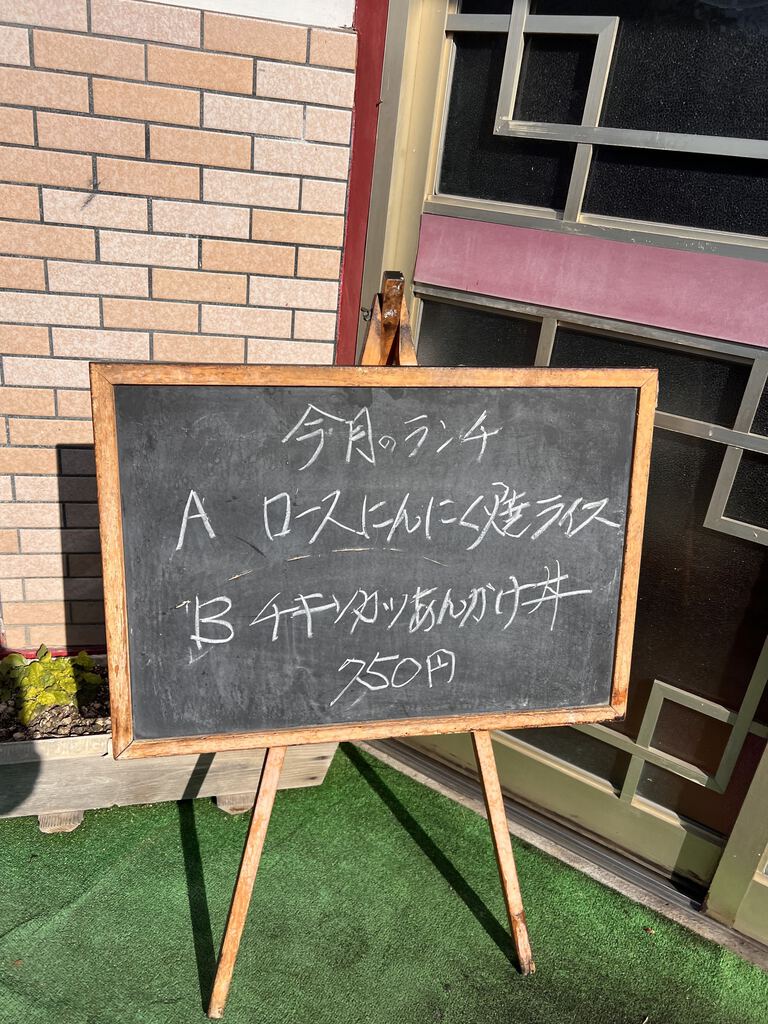 今月のランチ
A ロースにんにく焼ライス
B チキンカツあんかけ丼
750円